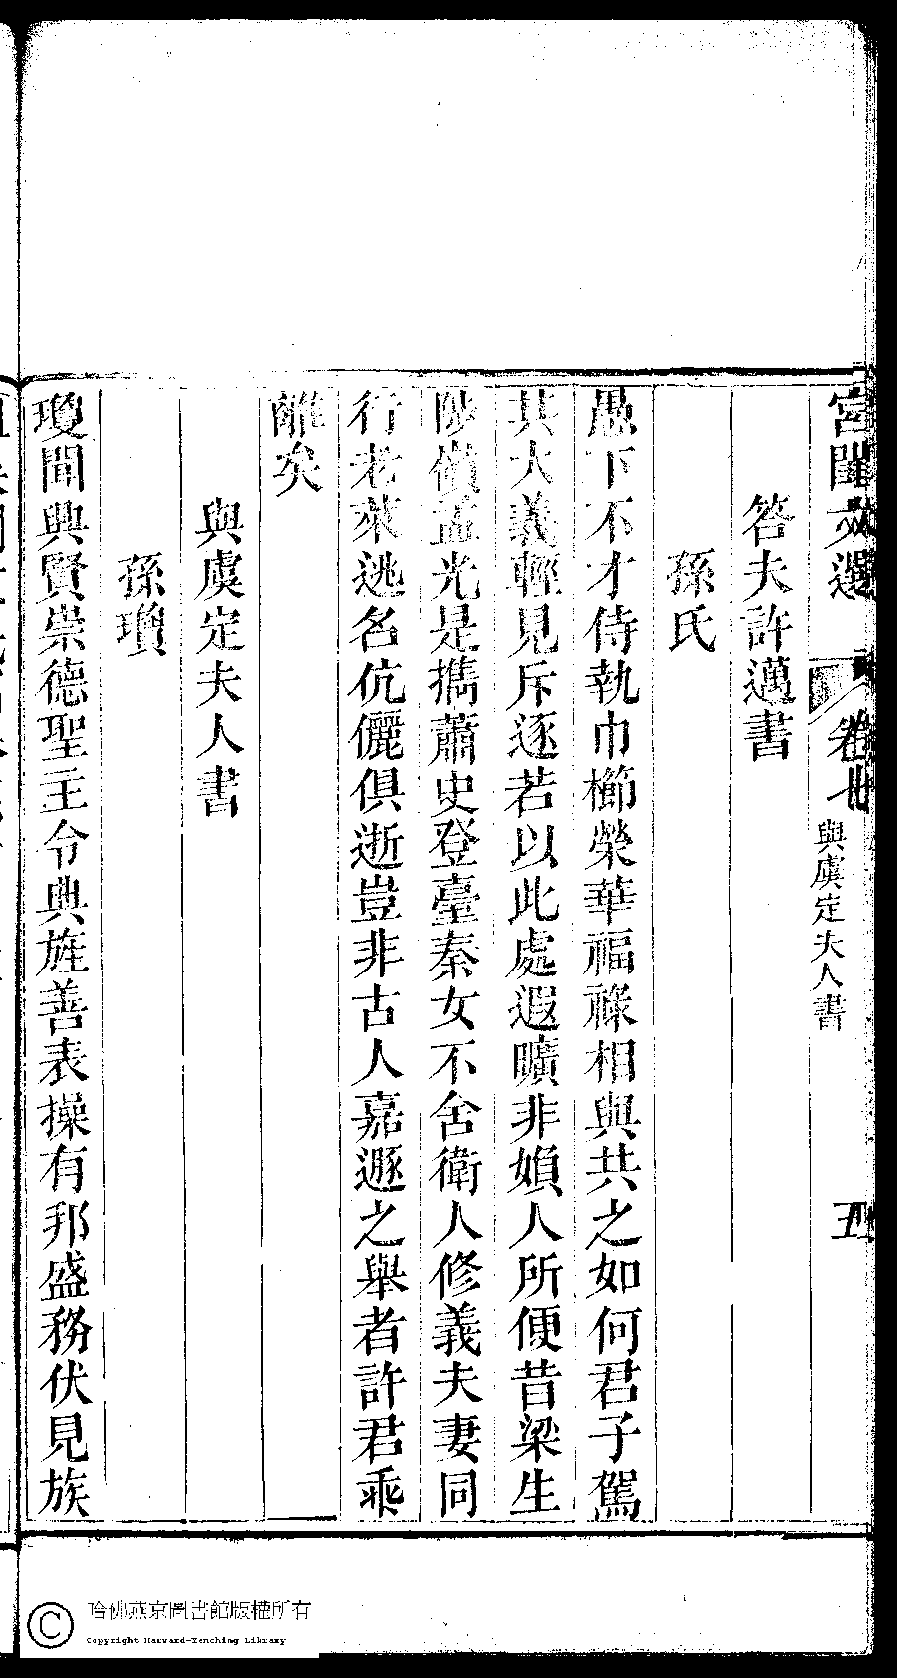 宮閨文選
卷廿
與虞定夫人書
五
答夫許邁書
孫氏
愚下不才侍執巾櫛榮華福祿相與共之如何君子駕
其大義輕見斥逐若以此處遐曠非嬪人所便昔梁生
陟嶺孟光是攜蕭史登臺秦女不舍衛人修義夫妻同
行老萊逃名伉儷俱逝豈非古人嘉遯之舉者許君乖
離矣
與虞定夫人書
孫瓊
瓊聞興賢崇德聖主令典旌善表操有邦盛務伏見族
哈佛燕京圖書館版權所有
Copyright Harvard-Yenching Library